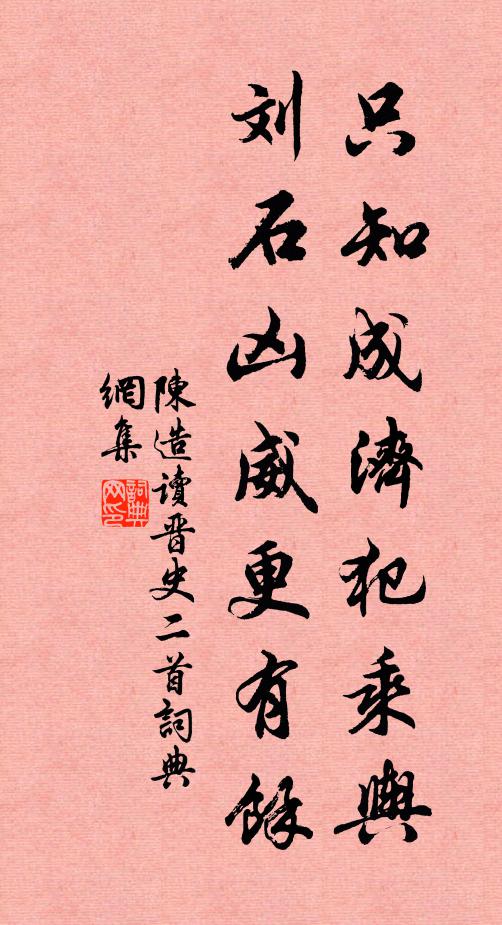 只知成濟犯乘輿
刘石凶威更有餘
陳造讀晋史二首詞典
網集
詞典网印